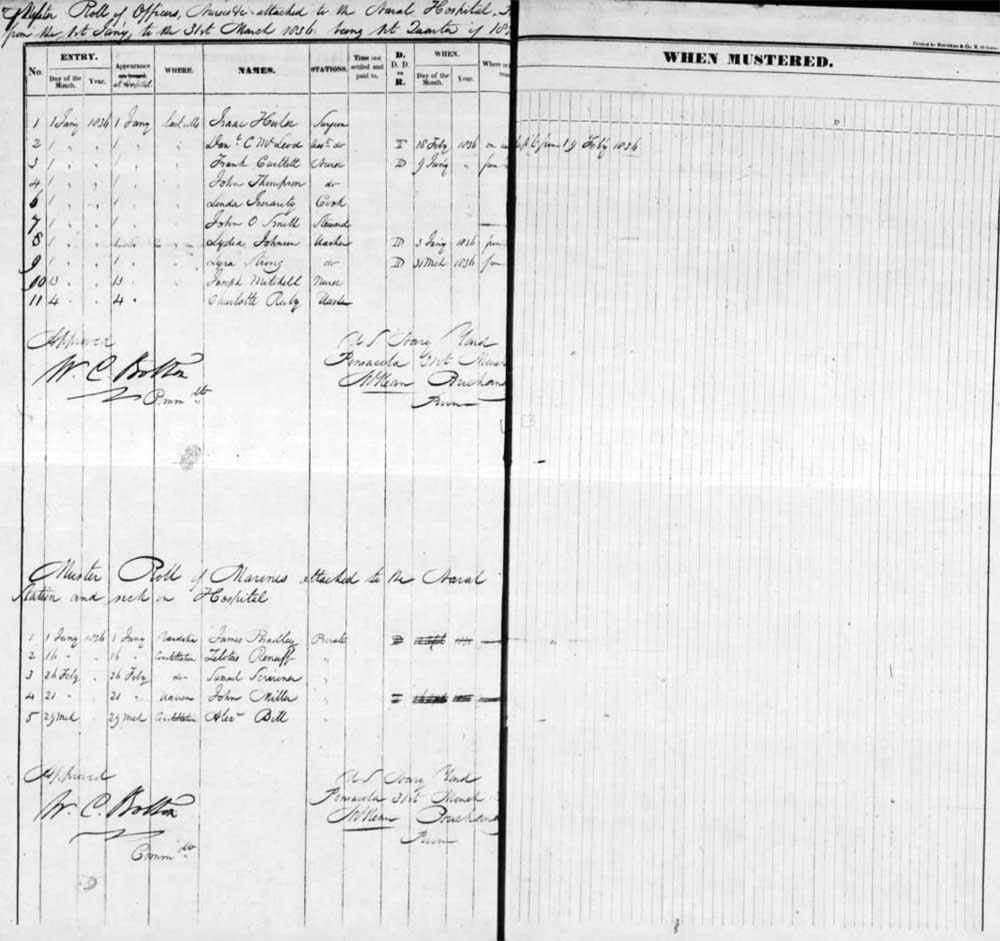 Muster Roll of Officers, Nurses &c attached to the Naval Hospital,
from the 1st Jany, to the 31st March 1836. being 1st Quarter of 183
Printed by
WHEN MUSTERED.
No. ENTRY. Day of the Month. Year. Appearance at Hospital WHERE. NAMES. STATIONS. Time last settled and paid to. D. D. D. or R. WHEN. Day of the Month. Year. Where
1 1 Jany 1836 1 Jany Isaac Hulse Surgeon
2 " " 1 " Dan.l C McLeod Asst do T 18 Feby 1836 on 19 Feby 1836
3 1 " 1 " Frank Cartlett Nurse D 9 Jany " from
4 1 " 1 " John Thompson do
6 1 " 1 " Linda Cook
7 1 " 1 " John O. Smith Steward
8 1 " 1 " Lydia Johnson Washer D 3 Jany 1836 from
9 1 " 1 " Strong do D 31 Mch 1836 from
10 13 " 13 Joseph Mitchell Nurse
11 4 " 4 " Charlotte Washer
Approved
W. C. Bolton
Comm dt
U S Navy Yard
Pensacola 31st March
McKean Buchana
Muster Roll of Marines attached to the Naval
Station and sick in Hospital
1 1 Jany 1836 1 Jany Vandalia James Bradley Private D
2 16 " " 16 " Constitution "
3 26 Feby 26 Feby do Samuel Scrivener "
4 21 " 21 " Warren John Miller "
5 29 Mch 29 Mch Constitution Alexr Bell
Approved
W. C. Bolton
Comm dt
U S Navy Yard
Pensacola 31st March
McKean Buchana